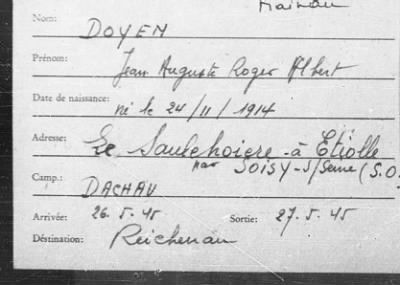 Mainau
Nom: DOYEN
Prénom: Jean Auguste Roger Albert
Date de naissance: né le 24/11/1914
Adresse: Le Saulchoire - à Etiolle
par SOISY-S/Seine (S.O.
Camp.: DACHAU
Arrivée: 26.5.45 Sortie: 27.5.45
Déstination: Reichenau